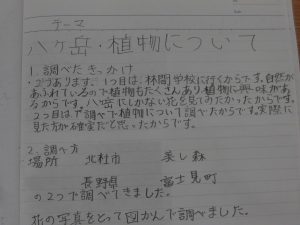 テーマ
八ヶ岳・植物について
1. 調べたきっかけ
・2つあります。1つ目は、林間学校に行くからです。自然が
あふれているので植物もたくさんあり植物に興味がある
からです。八ヶ岳にしかない花を見てのたかったからです。
2つ目は、で調べてについて調べ方からです。実際に
見た方が確実だと思ったからです。
2. 調べ方
場所 北杜市 美し森
長野県 富士見町
の2つで調べてきました。
花の写真をとって図かんで調べました。